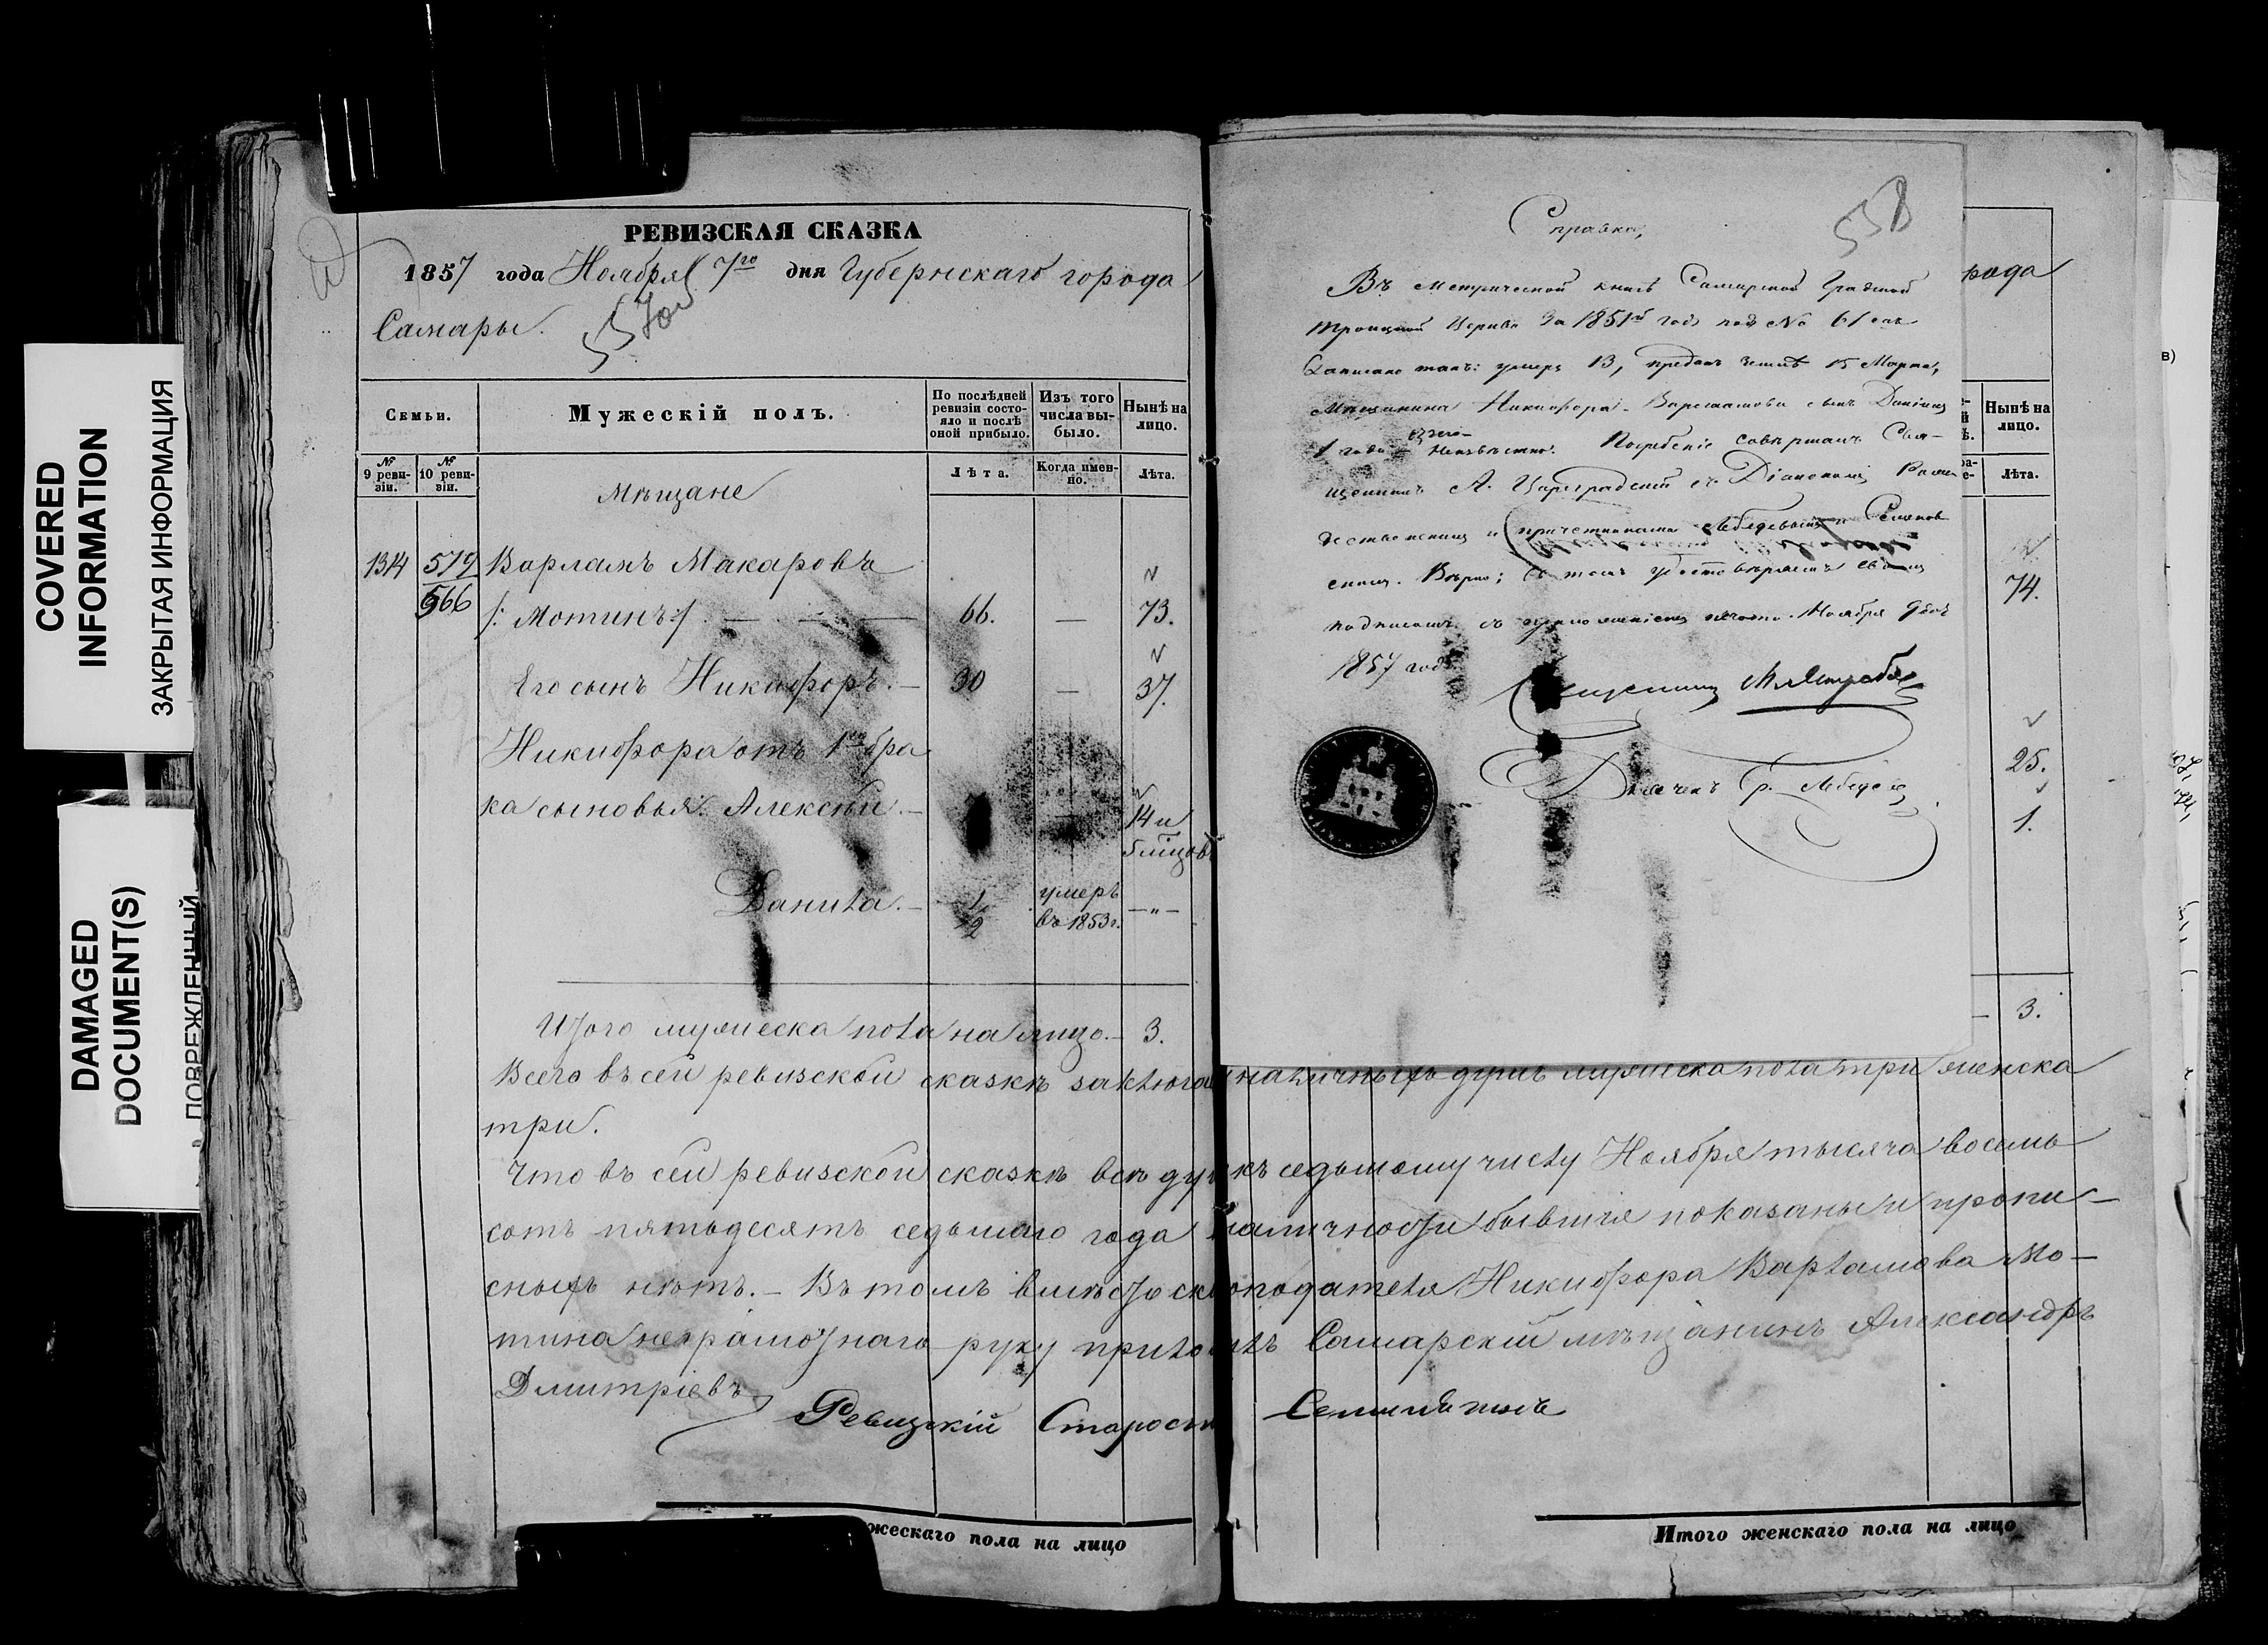 COVERED
INFORMATION
ЗАКРЫТАЯ ИНФОРМАЦИЯ
DAMAGED
DOCUMENT(S)
ПОВРЕЖДЕННЫЙ
РЕВИЗСКАЯ СКАЗКА
1857 года Ноября 7го дня Губернскаго города
Самары.
557об
Семьи.
Мужескій полъ.
По послѣдней ревизіи состо-
яло и послѣ
оной прибыло.
Изъ того
числа вы-
было.
Нынѣ на
лицо.
№
9 реви-
зіи.
№
10 реви-
зіи.
Лѣта.
Когда имен-
но.
Лѣта.
Мѣщане
1314 579 Варламъ Макаровъ
566 /: Мотинъ :/ — 66. — 73.
Его сынъ Никифоръ. — 30 — 37.
Никифора отъ 1го бра
ка сыновья: Алексѣй. — 14 и
Данила. — 1/2 умеръ
въ 1853 г. — " —
Итого мужеска пола на лицо. — 3.
Всего въ сей ревизской сказкѣ заключа наличныхъ душъ мужеска пола три женска
три.
Что въ сей ревизской сказкѣ всѣ ду къ седьмому числу Ноября тысяча восемь
сотъ пятьдесятъ седьмаго года наличности бывшія показаны и пропи-
сныхъ нѣтъ. — Въ томъ вмѣсто ск оподателя Никифора Варламова Мо-
тина неграмотнаго руку прило илъ Самарскій мѣщанинъ Александръ
Дмитріевъ
Ревизскій Старос
жескаго пола на лицо
558
Справка,
Въ Метрической книгѣ Самарской Градской
Троицкой Церкви за 1851й годъ под № 61
записано такъ: умеръ 13, преданъ землѣ 15 Марта,
Мѣщанина Никифора Варламова сынъ Даніилъ
1 года неизвѣстно. Погребеніе совершалъ Свя-
щенникъ А. Цареградскій съ Діакономъ
и причетниками Лебедевымъ
Вѣрно; въ томъ удостовѣряемъ
подписомъ съ приложеніемъ печати. Ноября 9
1857 года
рода
Нынѣ на
лицо.
Лѣта.
74.
25.
1.
3.
Итого женскаго пола на лицо